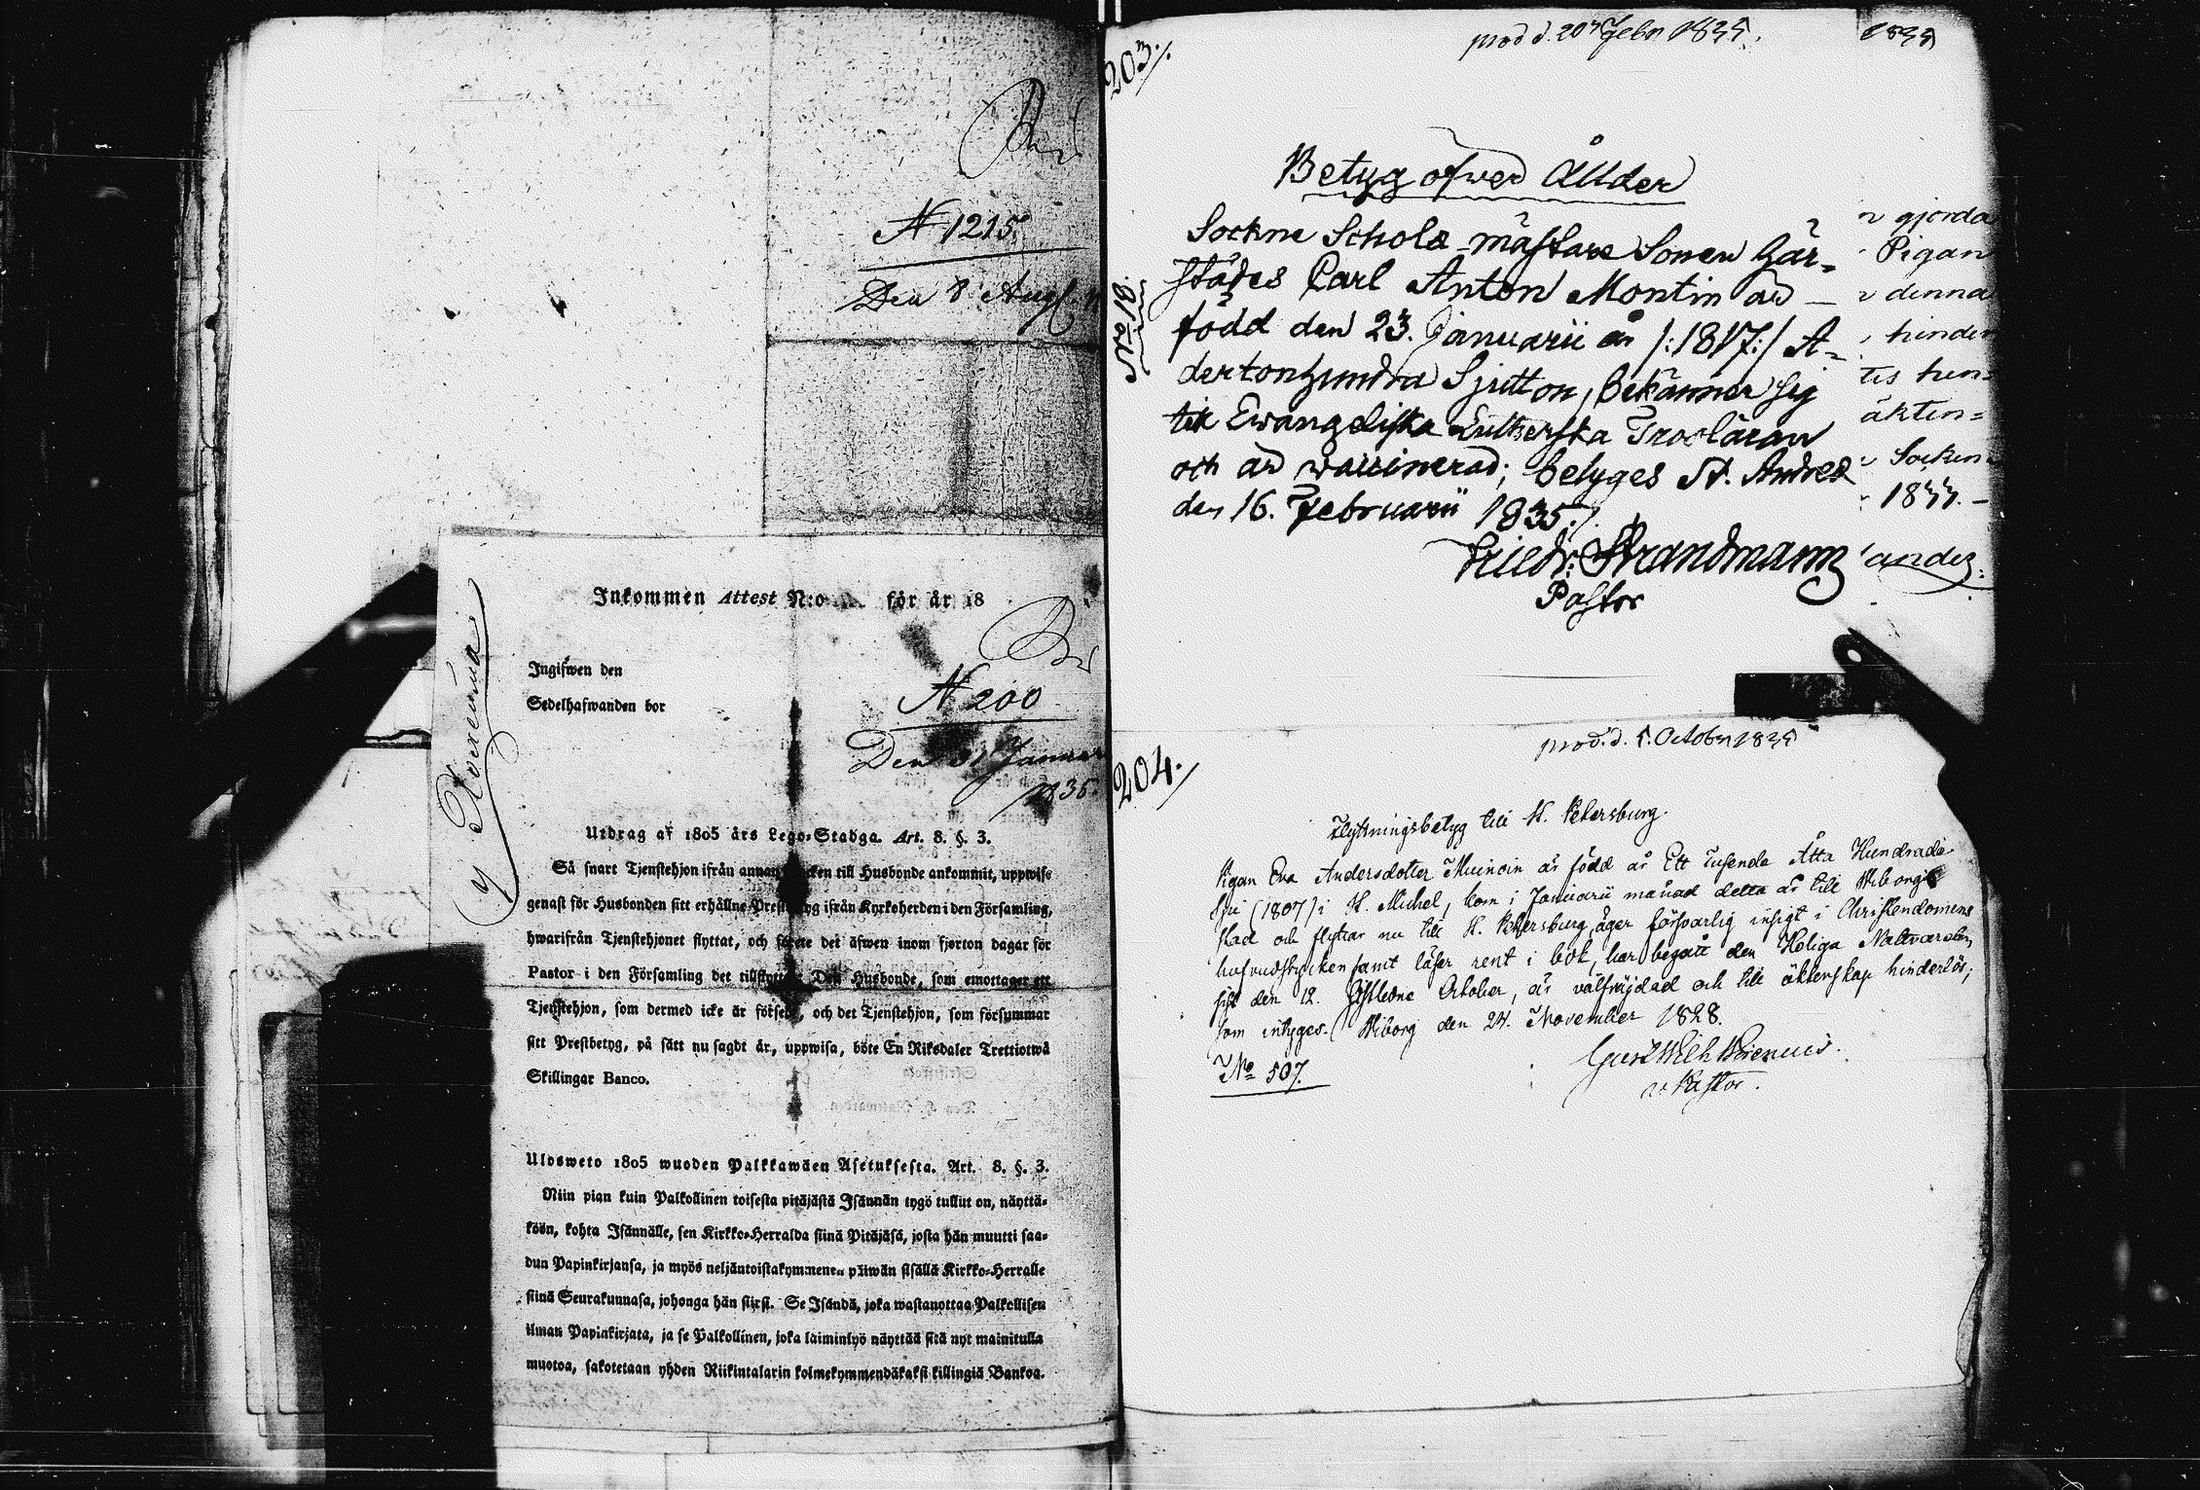 N 1215
Den 8 Aug
Inkommen Attest N:o för år 18
Ingifwen den
Sedelhafwanden bor
N 200
Den 31 Januar
1835.
Utdrag af 1805 års Lego-Stadga. Art. 8. §. 3.
Så snart Tjenstehjon ifrån annan Socken till Husbonde ankommit, uppwise
genast för Husbonden sitt erhållne Prestbetyg ifrån Kyrkoherden i den Församling,
hwarifrån Tjenstehjonet flyttat, och förete det äfwen inom fjorton dagar för
Pastor i den Församling det tillflyttat. Den Husbonde, som emottager ett
Tjenstehjon, som dermed icke är försedt, och det Tjenstehjon, som försummar
sitt Prestbetyg, på sätt nu sagdt är, uppwisa, böte En Riksdaler Trettiotwå
Skillingar Banco.
Ulosweto 1805 wuoden Palkkawäen Asetuksesta. Art. 8. §. 3.
Niin pian kuin Palkollinen toisesta pitäjästä Isännän tygö tullut on, näyttä-
köön, kohta Isännälle, sen Kirkko-Herralda siinä Pitäjäsä, josta hän muutti saa-
dun Papinkirjansa, ja myös neljäntoistakymmenen päiwän sisällä Kirkko-Herralle
siinä Seurakunnasa, johonga hän siirsi. Se Isändä, joka wastanottaa Palkollisen
ilman Papinkirjata, ja se Palkollinen, joka laiminlyö näyttää sitä nyt mainitulla
muotoa, sakotetaan yhden Riikintalarin kolmekymmendäkaksi killingiä Bankoa.
203./.
prod d. 20 Febr 1835.
Betyg öfwer Ållder
No 18.
Sockne Schole-mästare Sonen här-
städes Carl Anton Montin är
född den 23. Januarii år /:1817:/ A-
dertonhundra Sjutton, bekänner sig
till Ewangeliska Lutherska Trosläran
och är waccinerad; betyges St. Andree
den 16. Februarii 1835./.
Friedr: Strandmann
Pastor
n gjorda
Pigan
denna
hinder
tis hen=
äkten=
Socken
204./
prod. d. 5. October 1835
Flyttningsbetyg till St. Petersburg.
Pigan Eva Andersdotter Muinoin är född år Ett Tusende Åtta Hundrade
Sju (1807) i St. Michel, kom i Januarii månad detta år till Wiborgs
stad och flyttar nu till St. Petersburg, äger försvarlig insigt i Christendomens
hufvudstycken samt läser rent i bok, har begått den Heliga Nattvarden
sist den 12. sistledne October, är välfräjdad och till äktenskap hinderlös;
som intygas. Wiborg den 24. November 1828.
No 507.
v. Pastor.